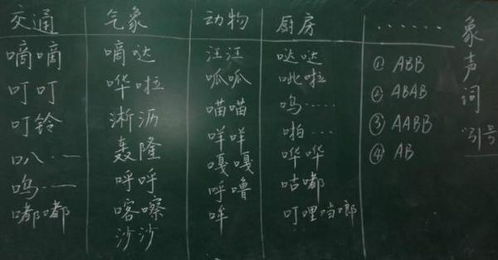 交通
嘀嘀
叮叮
叮铃
叭……
呜……
嘟嘟
气象
嘀哒
哗啦
淅沥
轰隆
呼呼
喀嚓
沙沙
动物
汪汪
呱呱
喵喵
咩咩
嘎嘎
呼噜
哞
厨房
哒哒
吡啦
呜……
啪……
哗哗
咕嘟
叮哩当啷
……
① ABB
② ABAB
③ AABB
④ AB
象声词
“引号